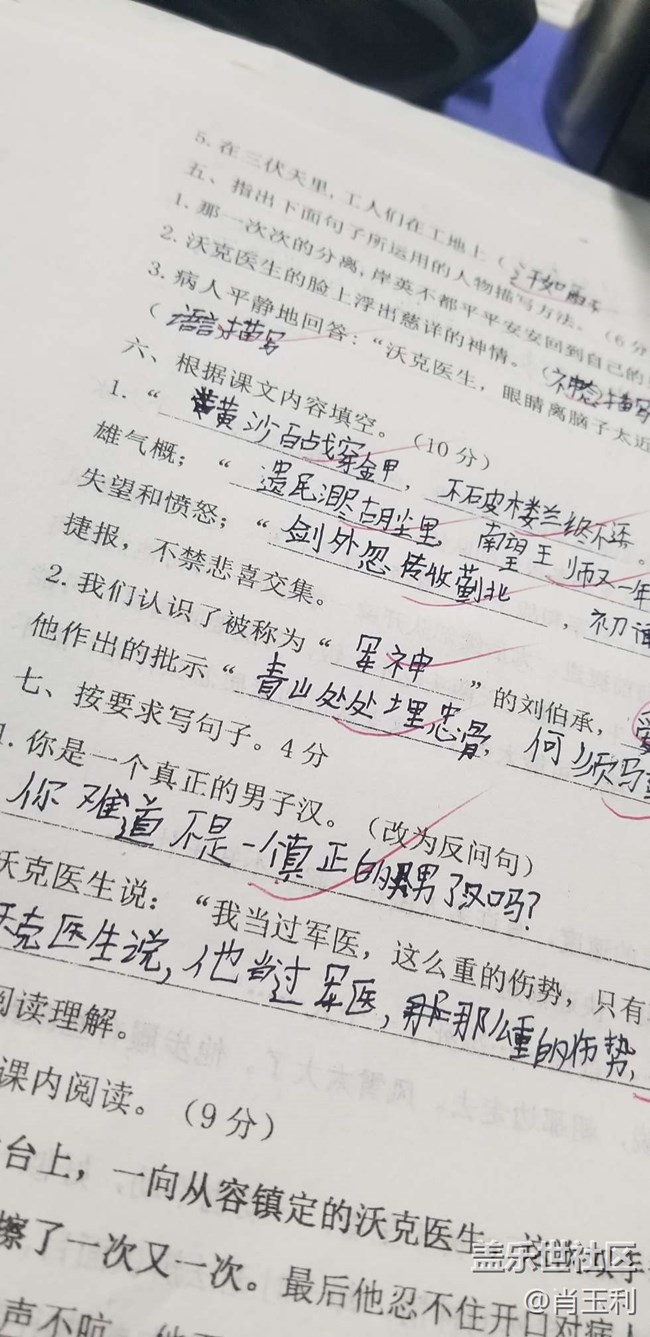 5. 在三伏天里,工人们在工地上(汗如雨下
五、指出下面句子所运用的人物描写方法。(6分
1. 那一次次的分离,岸英不都平平安安回到自己的
2. 沃克医生的脸上浮出慈详的神情。(神态描写
3. 病人平静地回答:“沃克医生,眼睛离脑子太近
(语言描写
六、根据课文内容填空。(10分)
1. “黄沙百战穿金甲,不破楼兰终不还。
雄气概;“遗民泪尽胡尘里,南望王师又一年
失望和愤怒;“剑外忽传收蓟北,初闻
捷报,不禁悲喜交集。
2. 我们认识了被称为“军神”的刘伯承,
他作出的批示“青山处处埋忠骨,何须马
七、按要求写句子。4分
1. 你是一个真正的男子汉。(改为反问句)
你难道不是一个真正的男子汉吗?
沃克医生说:“我当过军医,这么重的伤势,只有
沃克医生说,他当过军医,那么重的伤势,
阅读理解。
课内阅读。(9分)
台上,一向从容镇定的沃克医生,这次双手
擦了一次又一次。最后他忍不住开口对病人
声不吭,
盖乐世社区
@肖玉利